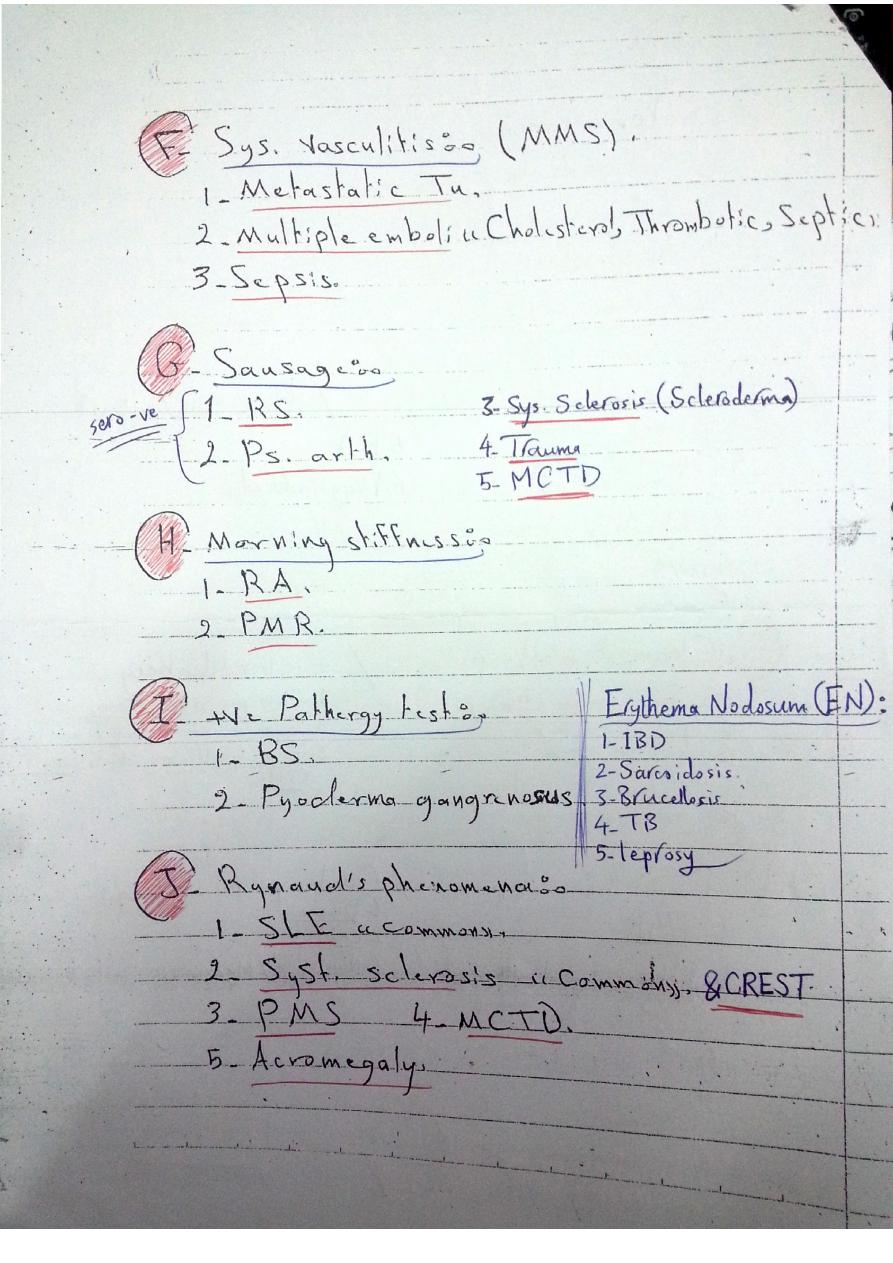 F- Sys. vasculitis:- (MMS).
1- Metastatic Tu.
2- Multiple emboli "Cholesterol, Thrombotic, Septic".
3- Sepsis.
G- Sausage:-
sero-ve { 1- RS.
2- Ps. arth.
3- Sys. Sclerosis (Scleroderma)
4- Trauma
5- MCTD
H- Morning stiffness:-
1- RA.
2- PMR.
I- +ve Pathergy test:-
1- BS.
2- Pyoderma gangrenosus.
Erythema Nodosum (EN):
1- IBD
2- Sarcoidosis.
3- Brucellosis
4- TB
5- leprosy
J- Rynaud's phenomena:-
1- SLE "common".
2- Syst. sclerosis "Common". & CREST
3- PMS 4- MCTD.
5- Acromegaly.